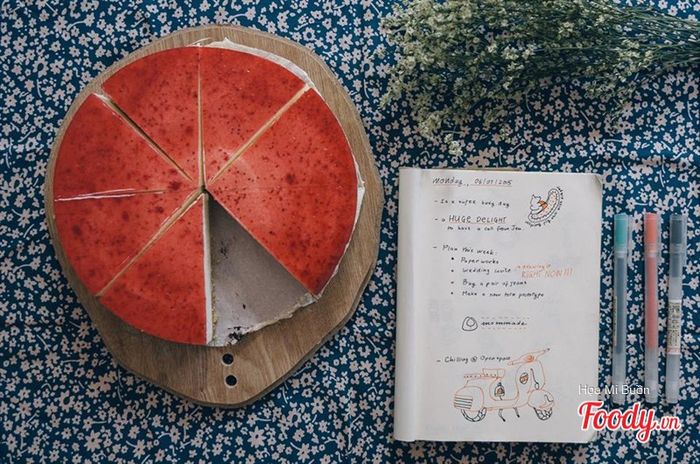 monday, 06/07/2015
- Is a super busy day
- a HUGE DELIGHT
to have a call from Jen
- Plan this week:
• Paperworks
• Wedding invite → drawing it RIGHT NOW!!!
• Buy a pair of jeans
• Make a new tote prototype
mommade
- Chilling @ Openspace
Hoạ Mi Buồn
Foody.vn